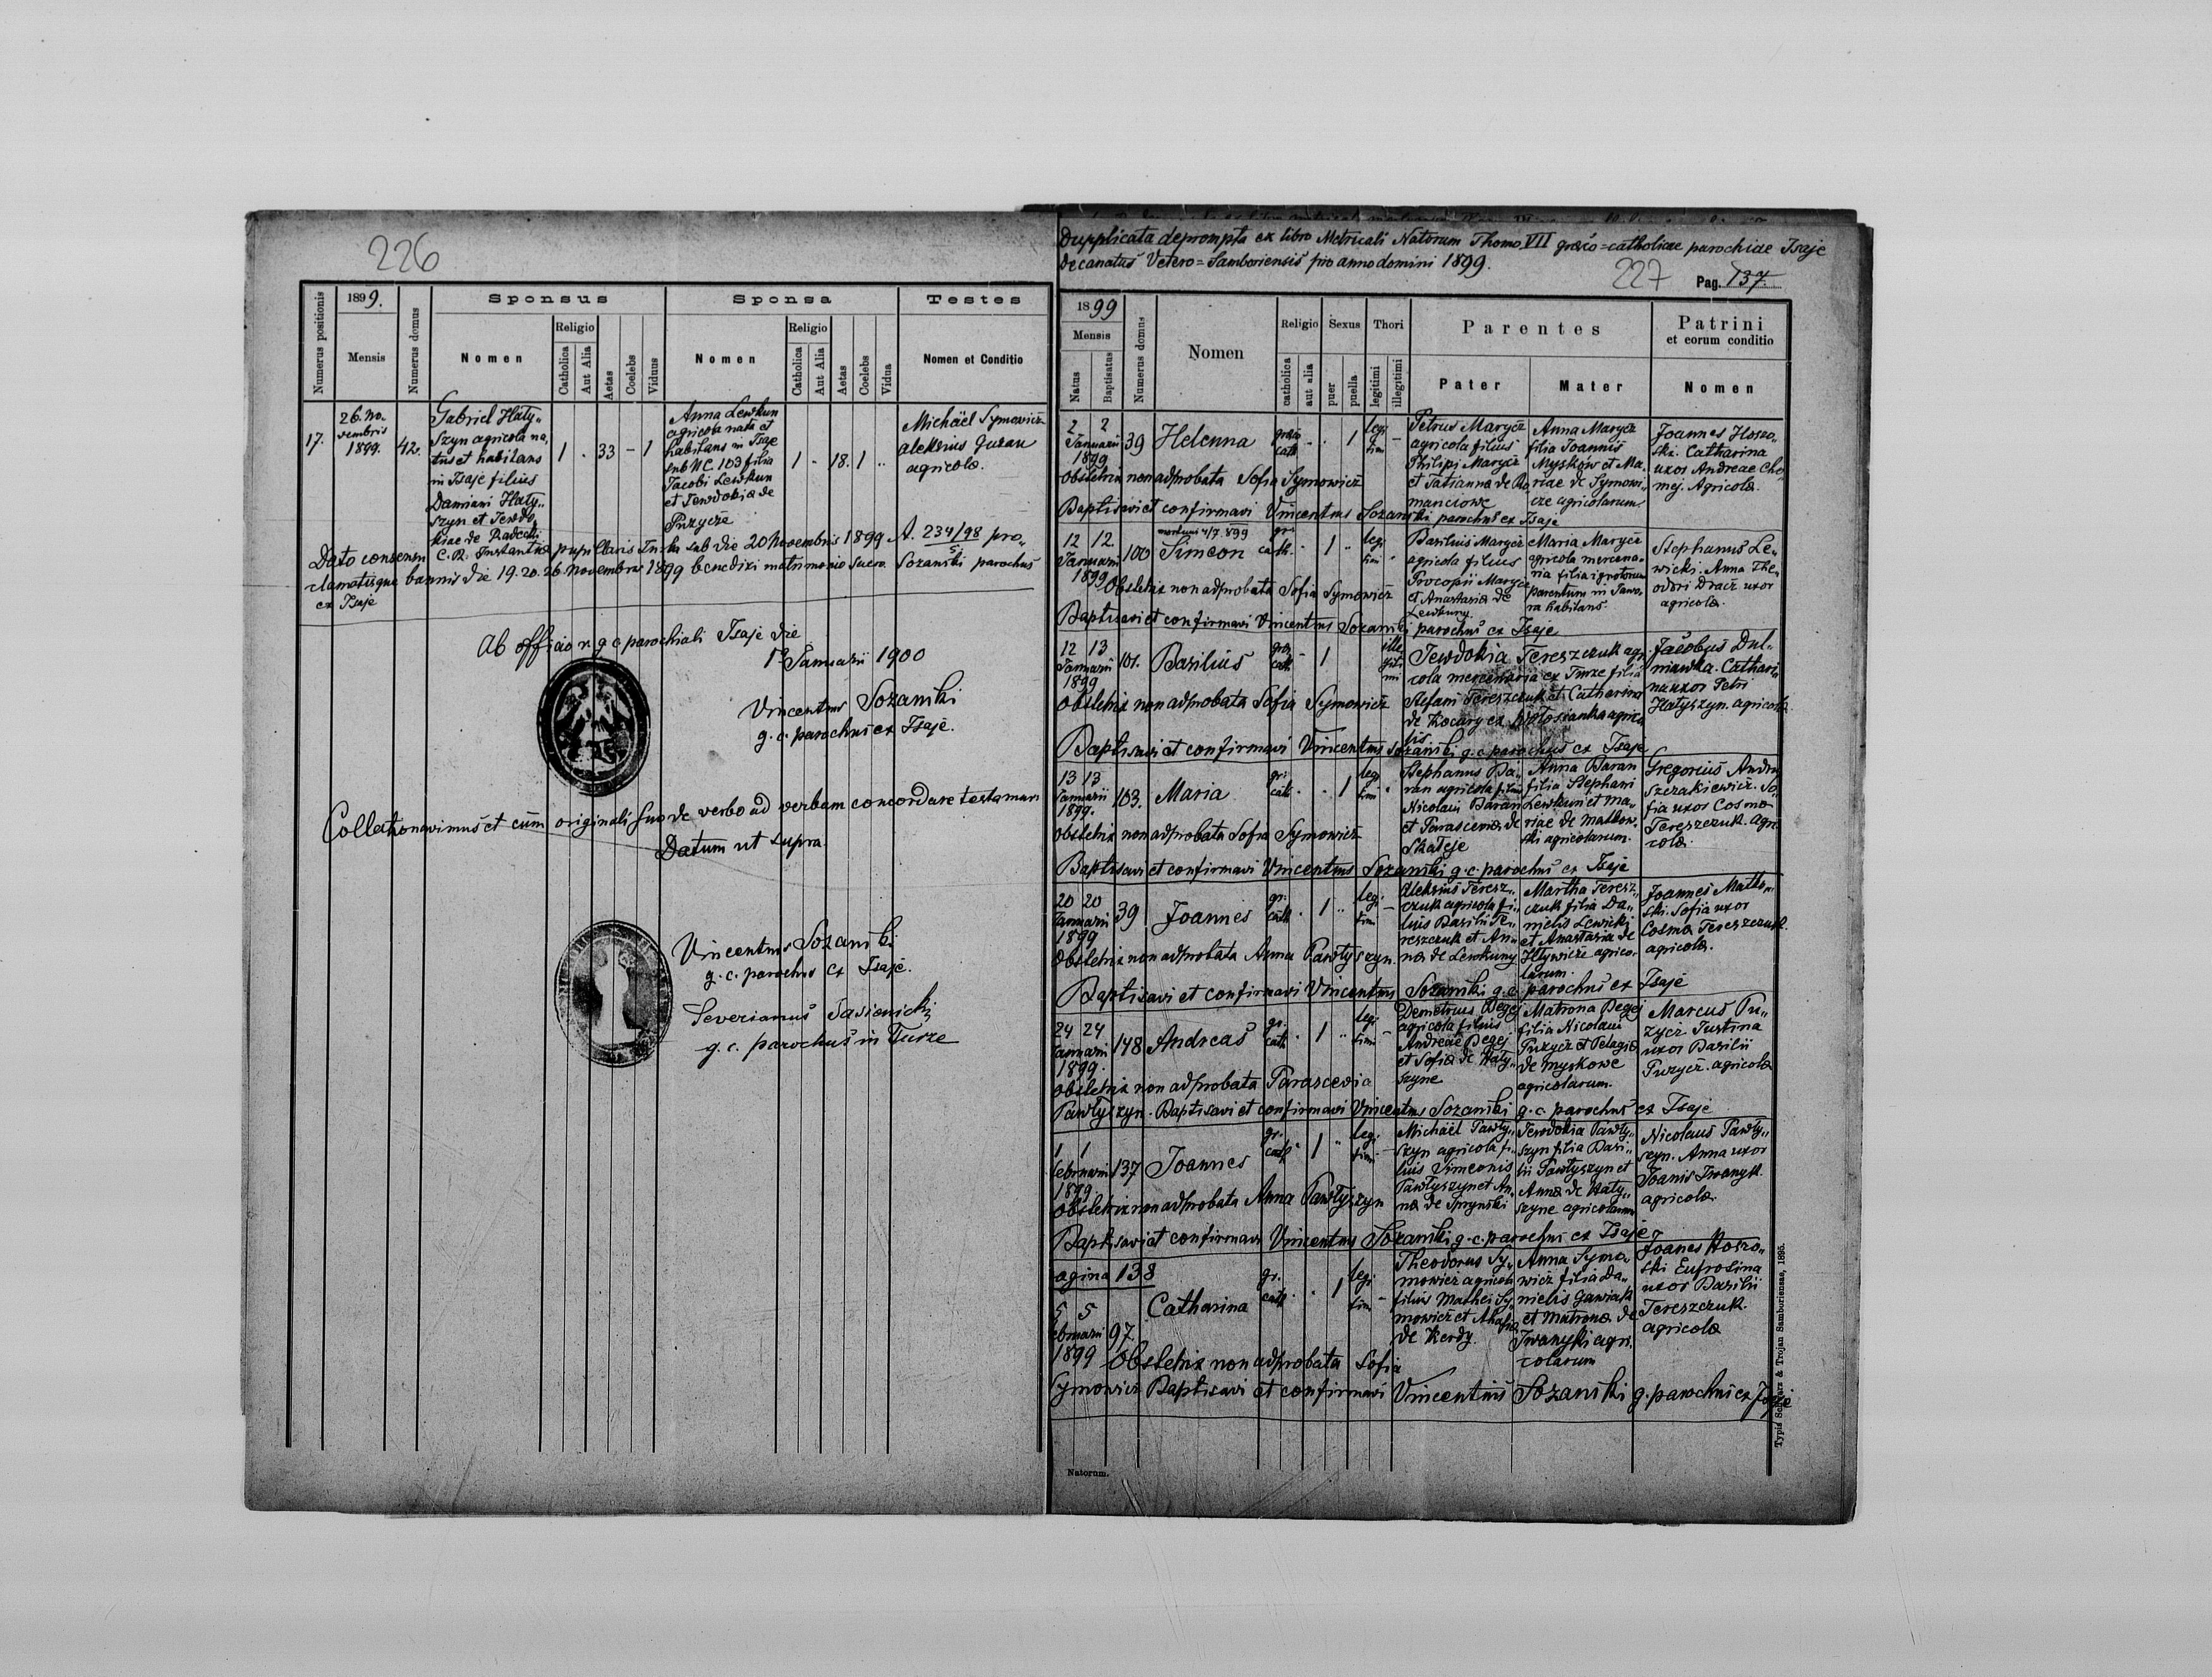 226
Numerus positionis
1899.
Mensis
Numerus domus
Sponsus
Nomen
Religio
Catholica
Aut Alia
Aetas
Coelebs
Viduus
Sponsa
Nomen
Religio
Catholica
Aut Alia
Aetas
Coelebs
Vidua
Testes
Nomen et Conditio
17.
26. No„
vembris
1899.
42.
Gabriel Haty„
szyn agricola na„
tus et habitans
in Isaje filius
Damiani Haty„
szyn et Tewdo„
kiae de
1 . 33 – 1
Anna Lewkun
agricola nata et
habitans in Isaje
sub NC. 103 filia
Jacobi Lewkun
et Tewdokia de
Puzycze
1 - 18. 1 ..
Michaël Symowicz
Aleksius
agricola.
Dato consensu C. R. Instantiae pupillaris Turka sub die 20 Novembris 1899 A. 234/98 pro„
5
clamatisque bannis die 19. 20. 26 Novembris 1899 benedixi matrimonio Sozanski parochus
ex Isaje
Ab officio r. g. c. parochiali Isaje die
Januarii 1900
Vincentius Sozanski
g. c. parochus ex Isaje.
Collationavimus et cum originali suo de verbo ad verbum concordare testamur
Datum ut supra.
Vincentius Sozanski
g. c. parochus ex Isaje.
Severianus
g. c. parochus in Turze
Dupplicata deprompta ex libro Metricali Natorum Thomo VII graeco=catholicae parochiae Isaje
decanatus Vetero=Samboriensis pro anno domini 1899.
227
Pag. 137.
1899
Mensis
Natus
Baptisatus
Numerus domus
Nomen
Religio
catholica
aut alia
Sexus
puer
puella
Thori
legitimi
illegitimi
Parentes
Pater
Mater
Patrini
et eorum conditio
Nomen
2 2
Januarii
1899
39
Helenna
graeco
cath
- . 1
legi
timi
–
Petrus Marycz
agricola filius
Philipi Marycz
et Tatianna de Ro
manciowe
Anna Marycz
filia Joannis
Myskow et Ma„
riae de Symowi„
cze agricolarum.
Joannes Hoszo„
ski. Catharina
uxor Andreae Cho„
mej. Agricola.
Obstetrix non adprobata Sofia Symowicz
Baptisavi et confirmavi Vincentius Sozanski parochus ex Isaje
12 12.
Januarii
1899
100
mortuus 4/7 899
Simeon
gr.
cath.
- 1 „
legi
timi
Basilius Marycz
agricola filius
Procopii Marycz
et Anastasia de
Lewkuny
Maria Marycz
agricola mercena„
ria filia ignotorum
parentum in Jawo„
ra habitans.
Stephanus Le„
wicki. Anna The„
odori Dracz uxor
agricola.
Obstetrix non adprobata Sofia Symowicz
Baptisavi et confirmavi Vincentius Sozanski parochus ex Isaje
12 13
Januarii
1899
101.
Basilius
gr.
cath
- 1
ille
giti
mi
Tewdokia Tereszczuk agri
cola mercenaria ex Turze filia
Stefani Tereszczuk et Catharina
de Kocury ex agrico
lis.
Jacobus Dul„
niawka. Cathari„
na uxor Petri
Hatyszyn. agricola
Obstetrix non adprobata Sofia Symowicz
Baptisavi et confirmavi Vincentius Sozanski g. c. parochus ex Isaje.
13 13
Januarii
1899.
103.
Maria
gr.
cath
. . 1
legi
timi
Stephanus Ba„
ran agricola filius
Nicolai Baran
et Parascevia de
Skateje
Anna Baran
filia Stephani
Lewkun et Ma„
riae de Matkow„
ski agricolarum.
Gregorius Andru
Szczakiewicz. So„
fia uxor Cosma
Tereszczuk. agri
cola.
Obstetrix non adprobata Sofia Symowicz
Baptisavi et confirmavi Vincentius Sozanski g. c. parochus ex Isaje
20 20
Januarii
1899
39
Joannes
gr.
cath
. 1 „
legi
timi
–
Aleksius Teresz„
czuk agricola fi„
lius Basilii Te„
reszczuk et An„
na de Lewkuny
Martha Teresz„
czuk filia Da„
nielis Lewicki
et Anastasia de
Hlywicze agrico„
larum.
Joannes Matko„
ski. Sofia uxor
Cosma Tereszczuk.
agricola.
Obstetrix non adprobata Anna Pawlyszyn.
Baptisavi et confirmavi Vincentius Sozanski g. c. parochus ex Isaje
24 24
Januarii
1899.
148
Andreas
gr.
cath
. 1 „
legi
timi
–
Demetrius Degej
agricola filius
Andreae Degej
et Sofia de Haty„
szyne
Matrona Degej
filia Nicolai
Puzycz et Pelagia
de Myskowe
agricolarum.
Marcus Pu„
zycz Justina
uxor Basilii
Puzycz. agricola
Obstetrix non adprobata Parascevia
Pawlyszyn. Baptisavi et confirmavi Vincentius Sozanski g. c. parochus ex Isaje
1 1
Februarii
1899.
137
Joannes
gr.
cath
- 1 „
legi
timi
–
Michaël Pawly„
szyn agricola fi„
lius Simeonis
Pawlyszyn et An„
na de Sprynski
Tewdokia Pawly„
szyn filia Basi„
lii Pawlyszyn et
Anna de Haty„
szyne agricolarum
Nicolaus Pawly„
szyn. Anna uxor
Joanis Iwanyk.
agricola.
Obstetrix non adprobata Anna Pawlyszyn
Baptisavi et confirmavi Vincentius Sozanski g. c. parochus ex Isaje
agina 138
5 5
ebruarii
1899
97.
Catharina
gr.
cath
. . 1
legi
timi
–
Theodorus Sy„
mowicz agricola
filius Mathei Sy„
mowicz et
de Kordy.
Anna Symo„
wicz filia Da„
nielis Gawiak
et Matrona de
Iwanyki agri„
colarum
Joanes Hoszo„
ski Eufrosina
uxor Basilii
Tereszczuk.
agricola
Obstetrix non adprobata Sofia
Symowicz Baptisavi et confirmavi Vincentius Sozanski g. parochus ex Isaje
Natorum.
Typis Schwarz & Trojan Samboriensae, 1895.